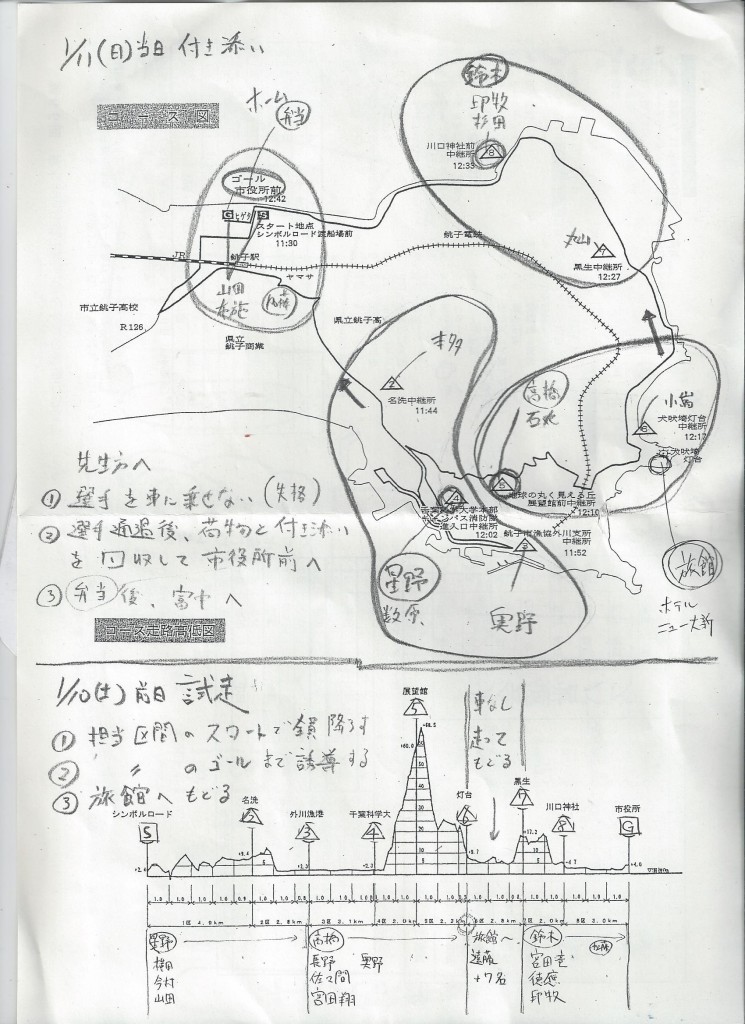 1/11(日)当日 付き添い
コース図
ホーム
弁当
鈴木
印牧
杉田
川口神社前
中継所
8
12:33
ゴール
市役所前
12:42
G
ヒゲタ
S
スタート地点
シンボルロード渡船場前
11:30
JR
銚子駅
ヤマサ
銚子電鉄
丸山
7
黒生中継所
12:27
市立銚子高校
R126
山田
県立
銚子商業
県立銚子高
2
名洗中継所
11:44
高橋
石丸
犬吠埼灯台
中継所
6
12:17
犬吠埼
灯台
5
地球の丸く見える丘
展望館前中継所
12:10
4
千葉科学大学本部
キャンパス消防署
進入口中継所
12:02
銚子市漁協外川支所
中継所
3
11:52
星野
数原
奥野
旅館
ホテル
ニュー大新
先生方へ
① 選手を車に乗せない(失格)
② 選手通過後、荷物と付き添い
を回収して市役所前へ
③ 弁当後、富中へ
コース走路高低図
1/10(土)前日 試走
① 担当区間のスタートで鎖降ろす
② 〃 のゴールまで誘導する
③ 旅館へもどる
車なし
走って
もどる
シンボルロード
S
名洗
2
外川漁港
3
千葉科学大
4
展望館
5
灯台
6
黒生
7
川口神社
8
市役所
G
1区 4.8km
2区 2.8km
3区 3.1km
4区 2.0km
5区 2.2km
6区 2.8km
7区 2.0km
8区 3.0km
星野
横田
今村
山田
高橋
長野
佐久間
宮田翔
奥野
旅館へ
遠藤
+7名
鈴木
宮田竜
徳應
印牧
松藤